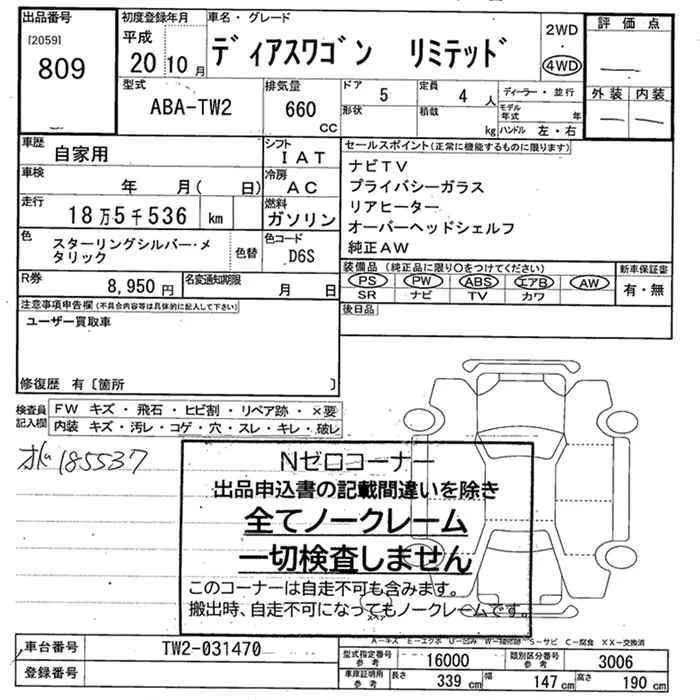 出品番号
[2059]
809
初度登録年月
平成
20 10 月
車名・グレード
ディアスワゴン リミテッド
2WD
・
4WD
評価点
—
外装 内装
— —
型式
ABA-TW2
排気量
660
CC
ドア 5
形状
定員 4 人
積載 kg
ディーラー・並行
モデル年式 年
ハンドル 左・右
車歴
自家用
シフト
IAT
車検
年 月( 日)
冷房
AC
走行
18万5千536 km
燃料
ガソリン
色
スターリングシルバー・メ
タリック
色替
色コード
D6S
R券
8,950円
名変通知期限
月 日
セールスポイント(正常に機能するものに限ります)
ナビTV
プライバシーガラス
リアヒーター
オーバーヘッドシェルフ
純正AW
装備品(純正品に限り○をつけてください)
新車保証書
PS PW ABS エアB AW
SR ナビ TV カワ
有・無
後日品
注意事項申告欄(不具合内容等は具体的に記入して下さい)
ユーザー買取車
修復歴 有〔箇所 〕
検査員
記入欄
FW キズ・飛石・ヒビ割・リペア跡・×要
内装 キズ・汚レ・コゲ・穴・スレ・キレ・破レ
185537
Nゼロコーナー
出品申込書の記載間違いを除き
全てノークレーム
一切検査しません
このコーナーは自走不可も含みます。
搬出時、自走不可になってもノークレームです。
A-キズ E-エクボ U-凹み W-補修跡 S-サビ C-腐食 XX-交換済
車台番号
TW2-031470
登録番号
型式指定番号
参考
16000
類別区分番号
参考
3006
車庫証明用
参考
長さ 339 cm
幅 147 cm
高さ 190 cm